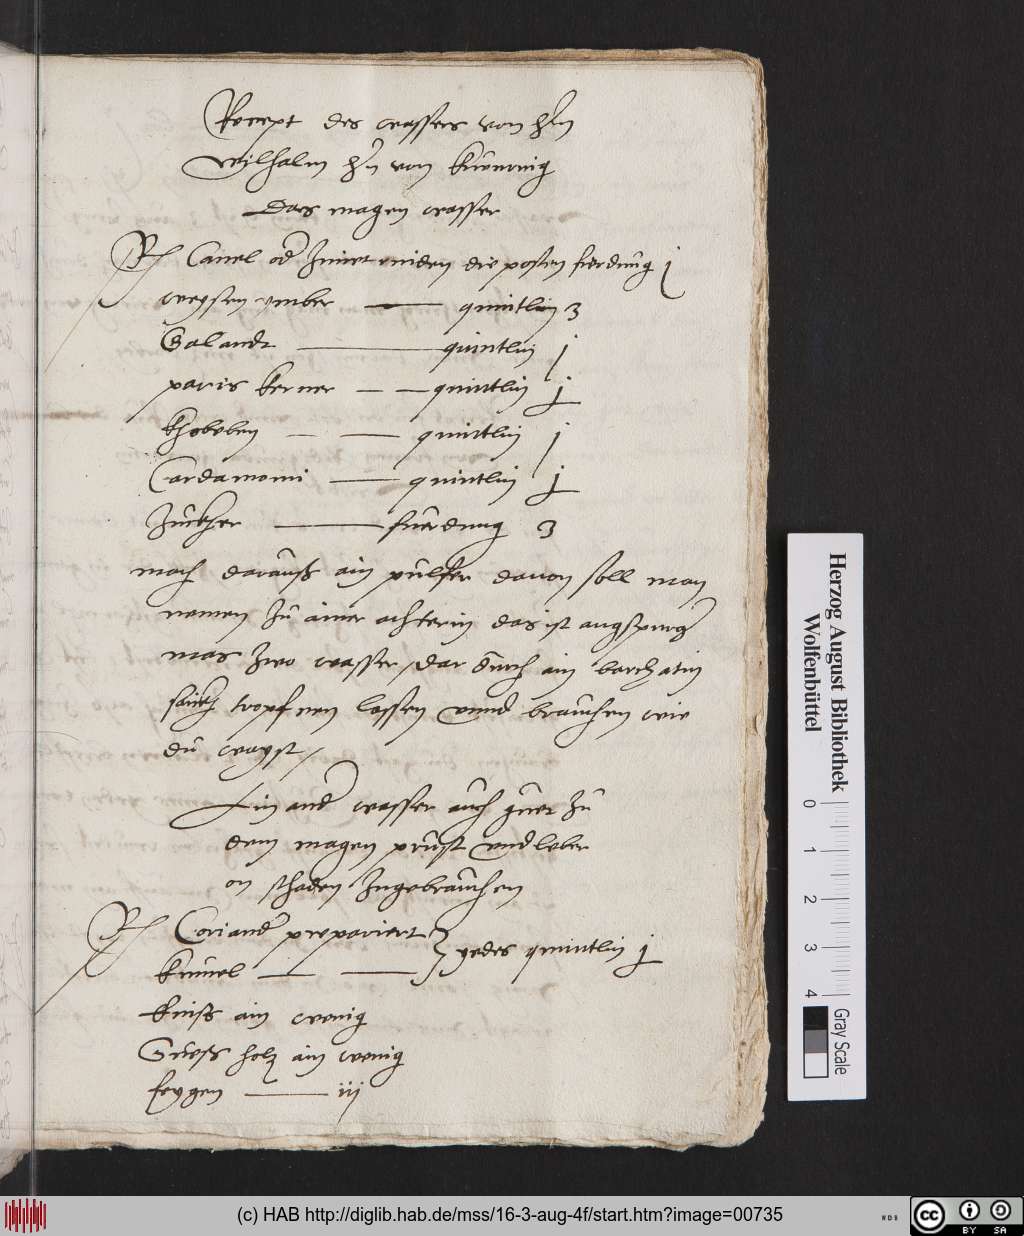 Recept des wassers von hern
Wilhalm hern von
Das magen wasser
Rp Canel oder Zimet rinden die posten fierdung j
weyssen ymber — quintlin 3
Galandt — quintlin j
paris kerner — — quintlin j
khobeben — — quintlin j
Cardamomi — quintlin j
Zuckher — fierdung 3
mach darauß ain pulfer davon soll man
nemen zu ainer achterin das ist augspurger
mas zwo wasser / dar durch ain barchatin
sackh tropfnen lassen vnnd brauchen wie
du wayst /
Ein ander wasser auch guet zu
dem magen prust vnd leber
on schaden zugebrauchen
Rp Coriander prepariert } yedes quintlin j
kumel — —
Eniß ain wenig
Sueß holz ain wenig
feygen — iij
Herzog August Bibliothek
Wolfenbüttel
0 1 2 3 4
Gray Scale
(c) HAB http://diglib.hab.de/mss/16-3-aug-4f/start.htm?image=00735
WDB
cc BY SA